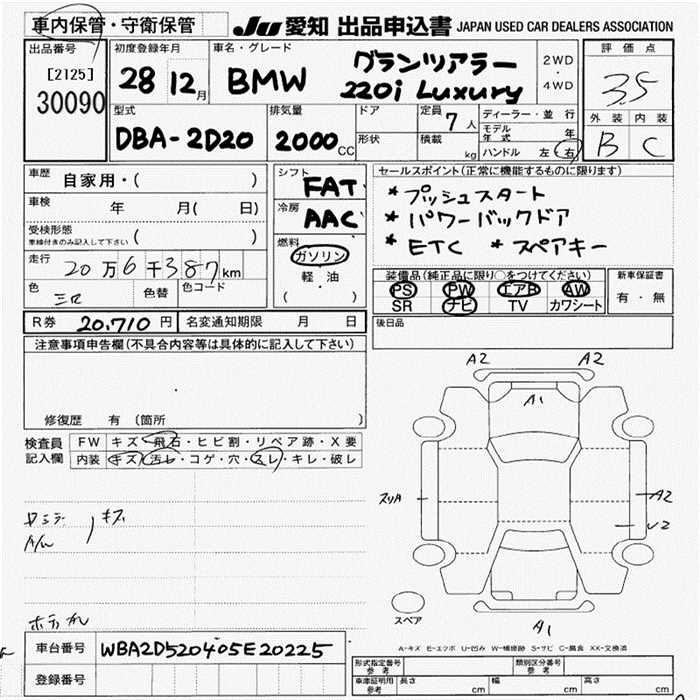 車内保管・守衛保管
JU 愛知 出品申込書 JAPAN USED CAR DEALERS ASSOCIATION
出品番号
[2125]
30090
初度登録年月
28 12月
車名・グレード
BMW グランツアラー
220i Luxury
2WD
・
4WD
評価点
3.5
外装 内装
B C
型式
DBA-2D20
排気量
2000cc
ドア
形状
定員
7人
積載
kg
ディーラー・並行
モデル年式 年
ハンドル 左・右
車歴 自家用・( )
車検 年 月( 日)
受検形態
車検付きのみ記入して下さい ( )
走行 20万6千387km
色 色替 色コード
R券 20,710円 名変通知期限 月 日
シフト
FAT
冷房
AAC
燃料
ガソリン
・
軽・油
( )
セールスポイント(正常に機能するものに限ります)
* プッシュスタート
* パワーバックドア
* ETC * スペアキー
装備品(純正品に限り○をつけてください)
PS PW エアB AW
SR ナビ TV カワシート
新車保証書
有・無
後日品
注意事項申告欄(不具合内容等は具体的に記入して下さい)
修復歴 有 (箇所 )
検査員記入欄
FW キズ・飛石・ヒビ割・リペア跡・X要
内装 キズ・汚レ・コゲ・穴・スレ・キレ・破レ
キズ
A2 A2
A1
スリA
A2
A1
スペア
A-キズ E-エクボ U-凹み W-補修跡 S-サビ C-腐食 XX-交換済
車台番号 WBA2D520405E20225
登録番号
形式指定番号
参考
類別区分番号
参考
車庫証明用
参考
長さ cm 幅 cm 高さ cm